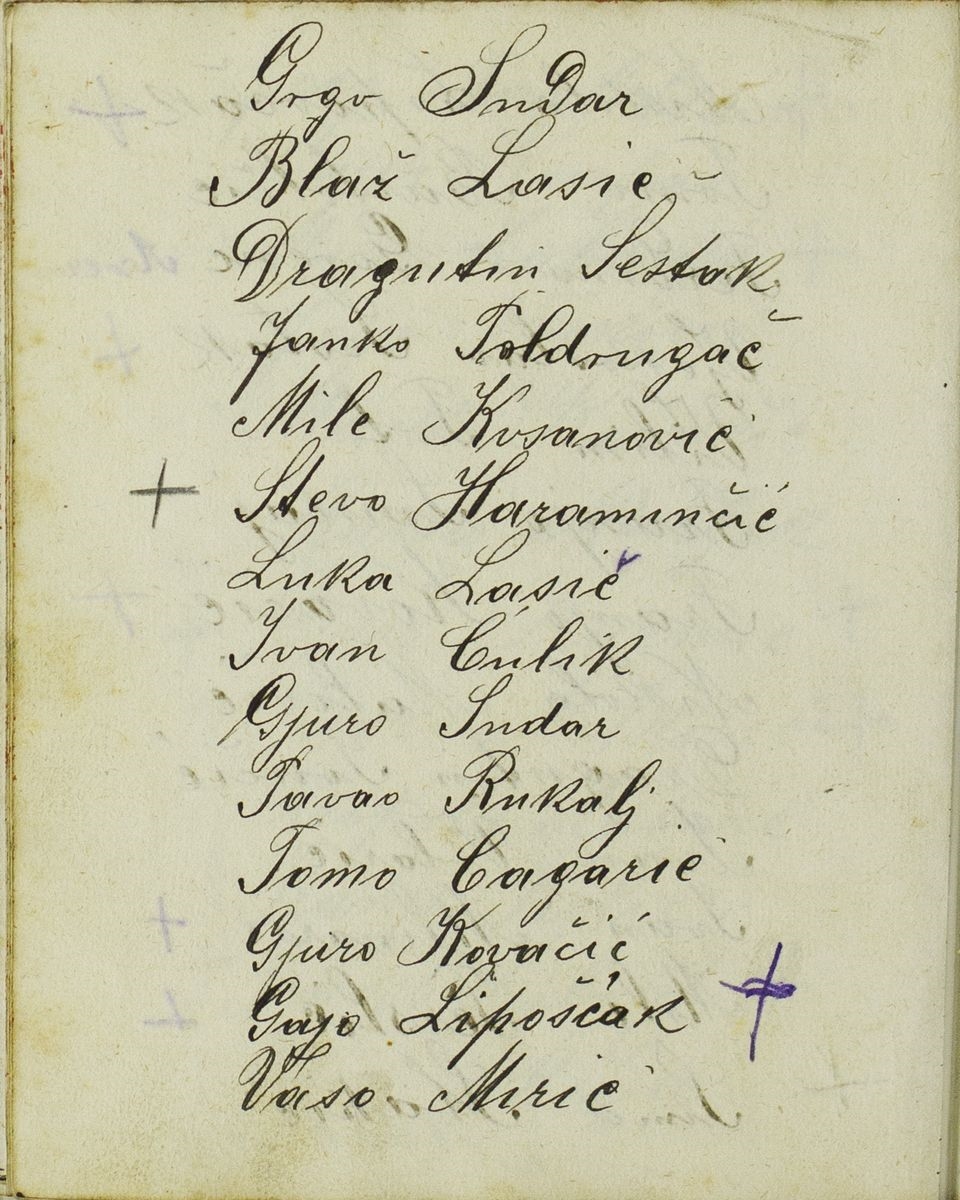 Grgo Sudar
Blaž Lasić
Dragutin Šestak
Janko Poldrugač
Mile Kosanović
+ Stevo Haraminčić
Luka Lasić
Ivan Čulik
Gjuro Sudar
Pavao Rukalj
Tomo Cagarić
Gjuro Kovačić
Gajo Lipošćak +
Vaso Mirić